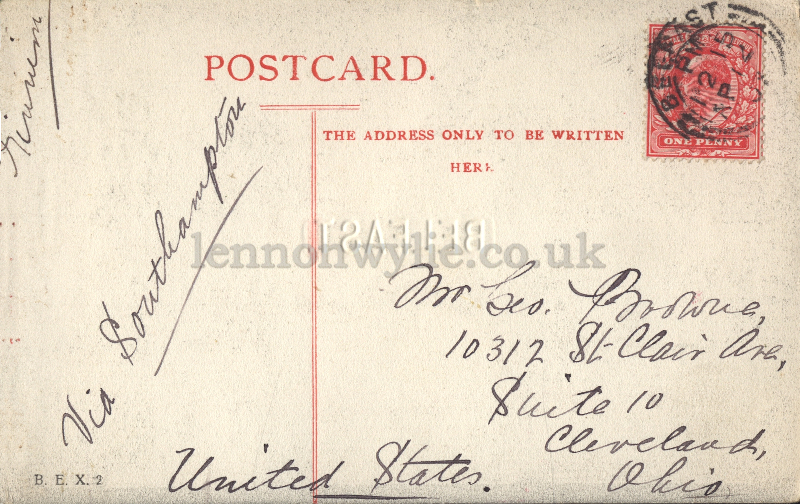 POSTCARD.
THE ADDRESS ONLY TO BE WRITTEN
HERE.
BELFAST
ONE PENNY
(BELFAST)
lennonwylie.co.uk
Via Southampton
Mr Geo. Browne,
10312 St Clair Ave,
Suite 10
Cleveland,
Ohio
United States.
B. E. X. 2